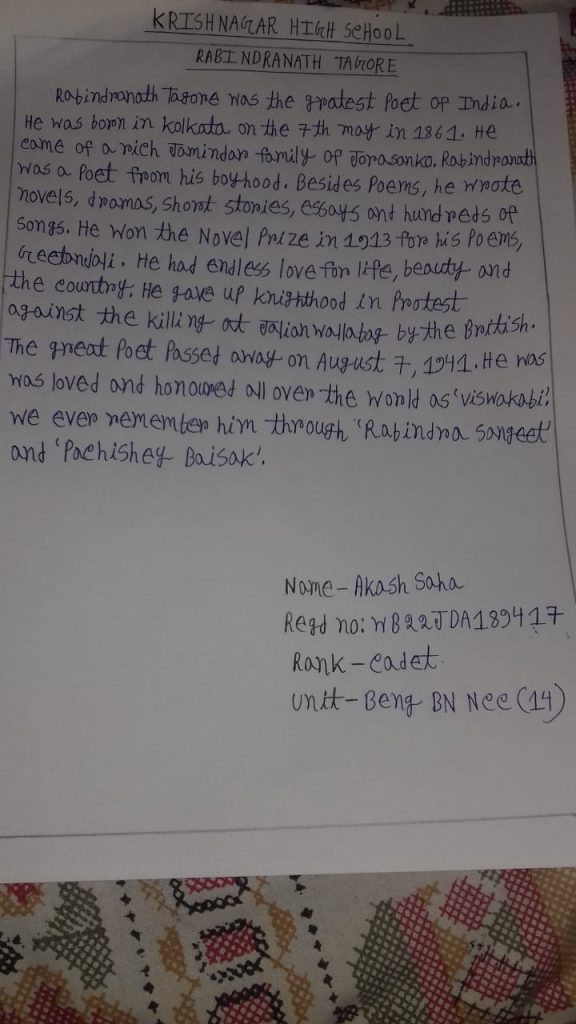 KRISHNAGAR HIGH SCHOOL
RABINDRANATH TAGORE
Rabindranath Tagore was the gratest Poet of India.
He was born in Kolkata on the 7th may in 1861. He
came of a rich Jamindar family of Jorasanko. Rabindranath
was a Poet from his boyhood. Besides Poems, he wrote
novels, dramas, short stories, essays and hundreds of
songs. He won the Novel Prize in 1913 for his Poems,
Geetanjali. He had endless love for life, beauty and
the country. He gave up knighthood in Protest
against the killing at Jalianwallabag by the British.
The great Poet Passed away on August 7, 1941. He was
was loved and honoured all over the world as 'viswakabi'.
we ever remember him through 'Rabindra sangeet'
and 'Pachishey Baisak'.
Name - Akash Saha
Regd no: WB22JDA189417
Rank - cadet.
Unit - Beng BN Ncc (14)